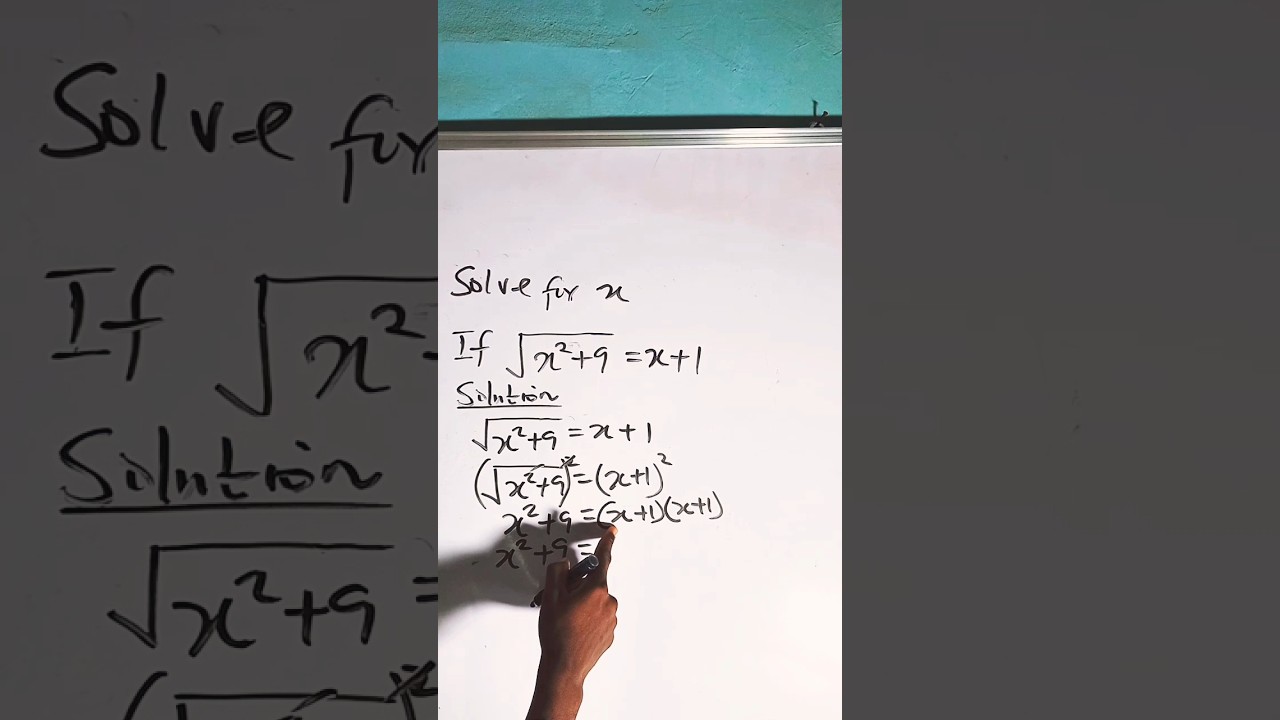 Solve for x
If √x²+9 = x+1
Solution
√x²+9 = x+1
(√x²+9)² = (x+1)²
x²+9 = (x+1)(x+1)
x²+9 =